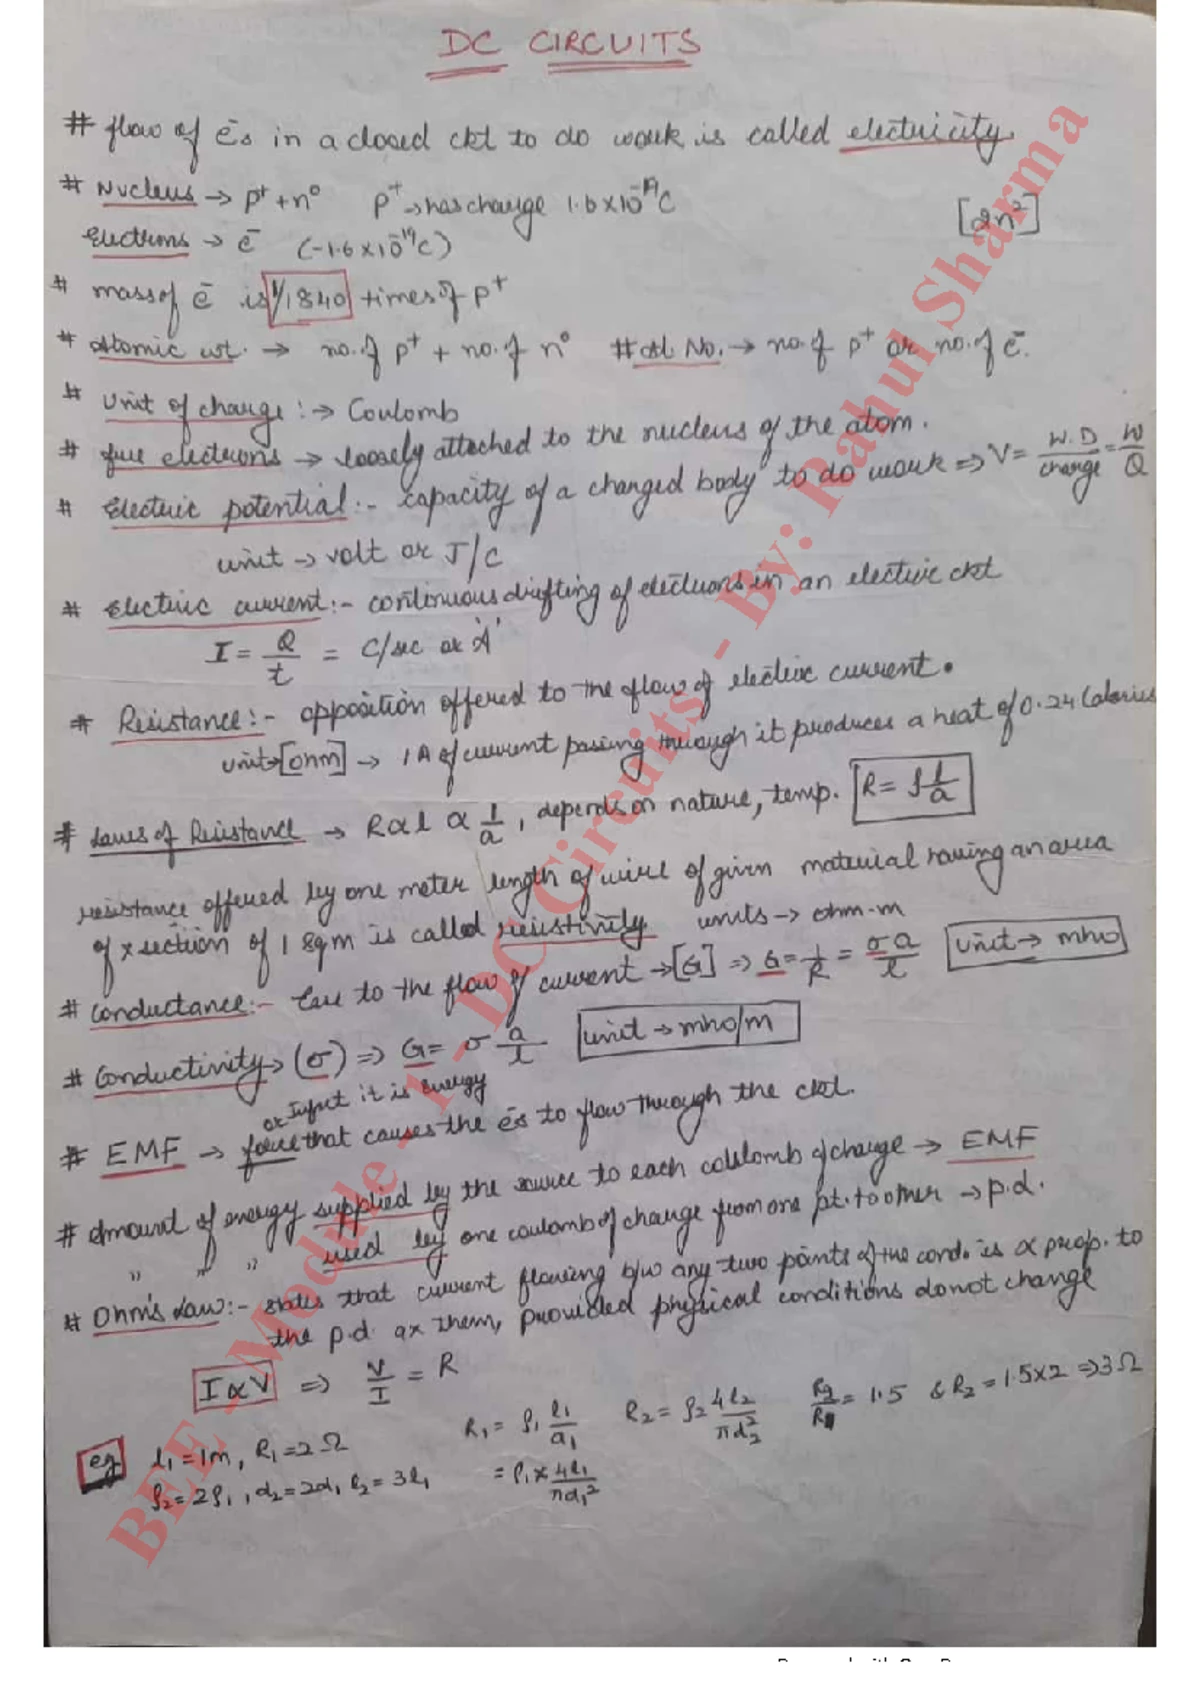 DC CIRCUITS
# flow of ēs in a closed ckt to do work is called electricity.
# Nucleus → p⁺ + n⁰ p⁺ → has charge 1.6×10⁻¹⁹C [2n²]
Electrons → ē (-1.6×10⁻¹⁹C)
# mass of ē is 1/1840 times of p⁺
# Atomic wt. → no. of p⁺ + no. of n⁰ # At. No. → no. of p⁺ or no. of ē.
# Unit of charge :→ Coulomb
# free electrons → loosely attached to the nucleus of the atom.
# Electric potential :- capacity of a charged body to do work ⇒ V = W.D/charge = W/Q
unit → volt or J/C
# Electric current :- continuous drifting of electrons in an electric ckt
I = Q/t = C/sec or 'A'
# Resistance :- opposition offered to the flow of electric current.
unit → [ohm] → 1A of current passing through it produces a heat of 0.24 Calories
# Laws of Resistance → R ∝ l ∝ 1/a, depends on nature, temp. R = ρ l/a
resistance offered by one meter length of wire of given material having an area
of x section of 1 sqm is called resistivity units → ohm-m
# Conductance :- Ease to the flow of current → [G] ⇒ G = 1/R = σa/l unit → mho
# Conductivity → (σ) ⇒ G = σ a/l unit → mho/m
or Input it is energy
# EMF → force that causes the ēs to flow through the ckt.
# Amount of energy supplied by the source to each coulomb of charge → EMF
" " " used by one coulomb of charge from one pt. to other → p.d.
# Ohm's Law :- states that current flowing b/w any two points of the cond. is ∝ prop. to
the p.d. ax them, provided physical conditions donot change
I ∝ V ⇒ V/I = R
eg l₁ = 1m, R₁ = 2Ω R₁ = ρ₁ l₁/a₁ R₂ = ρ₂ 4l₂/πd₂² R₂/R₁ = 1.5 & R₂ = 1.5×2 ⇒ 3Ω
ρ₂ = 2ρ₁, d₂ = 2d₁ l₂ = 3l₁ = ρ₁ × 4l₁/πd₁²
BEE - Module - 1 - DC Circuits - By: Rahul Sharma